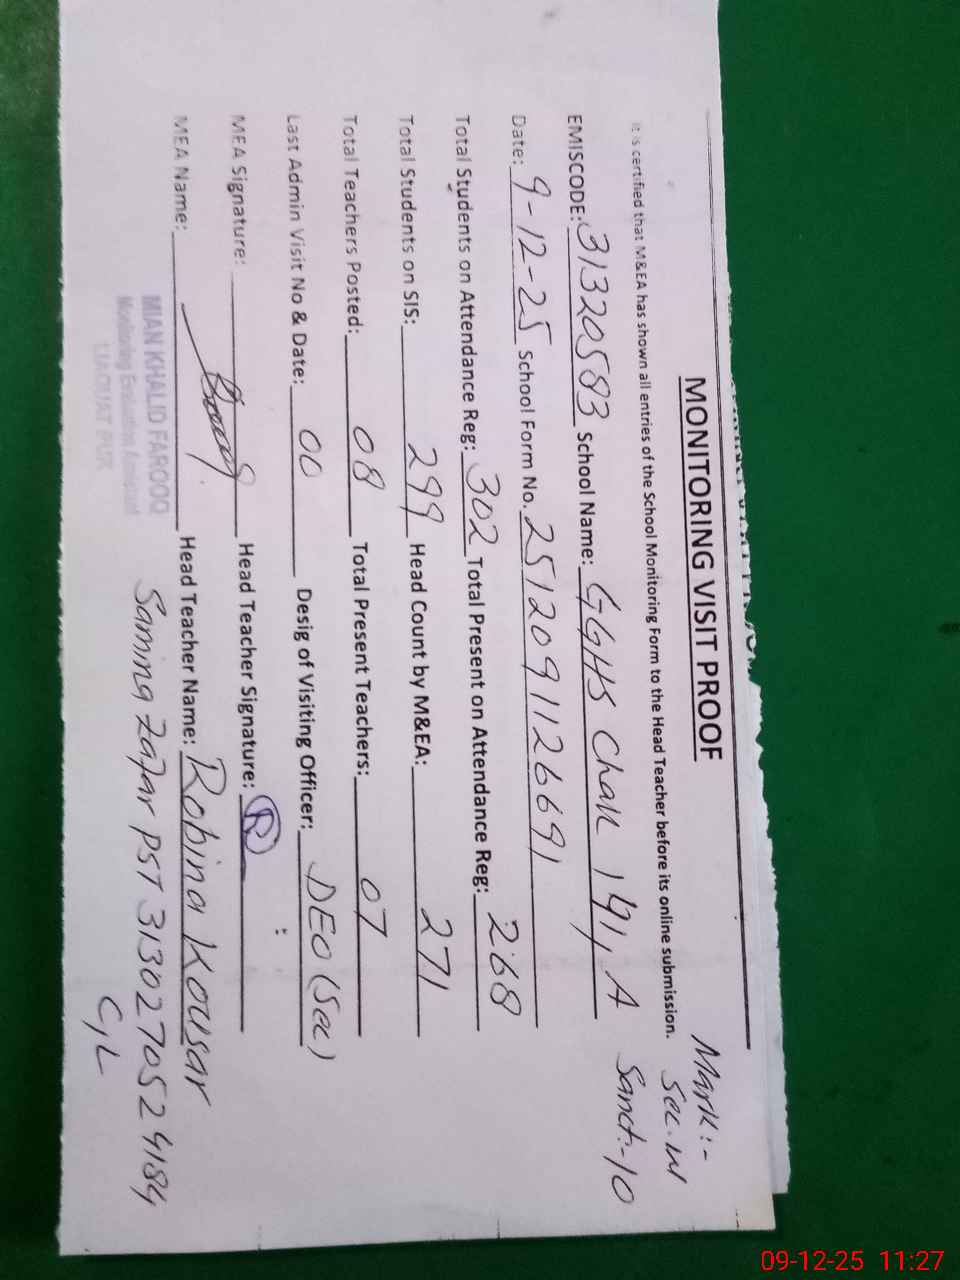 MONITORING VISIT PROOF
Mark:-
Sec. W
Sanct:-10
It is certified that M&EA has shown all entries of the School Monitoring Form to the Head Teacher before its online submission.
EMISCODE: 31320583 School Name: GGHS Chak 141, A
Date: 9-12-25 School Form No. 251209112669 1
Total Students on Attendance Reg: 302 Total Present on Attendance Reg: 268
Total Students on SIS: 299 Head Count by M&EA: 271
Total Teachers Posted: 08 Total Present Teachers: 07
Last Admin Visit No & Date: 00 Desig of Visiting Officer: DEO (Sec)
MEA Signature: Head Teacher Signature: R
MEA Name: Head Teacher Name: Robina Kousar
MIAN KHALID FAROOQ
Monitoring Evaluation Assistant
LIAQUAT PUR
Samina Zafar PST 3130270524184
C/L
09-12-25 11:27